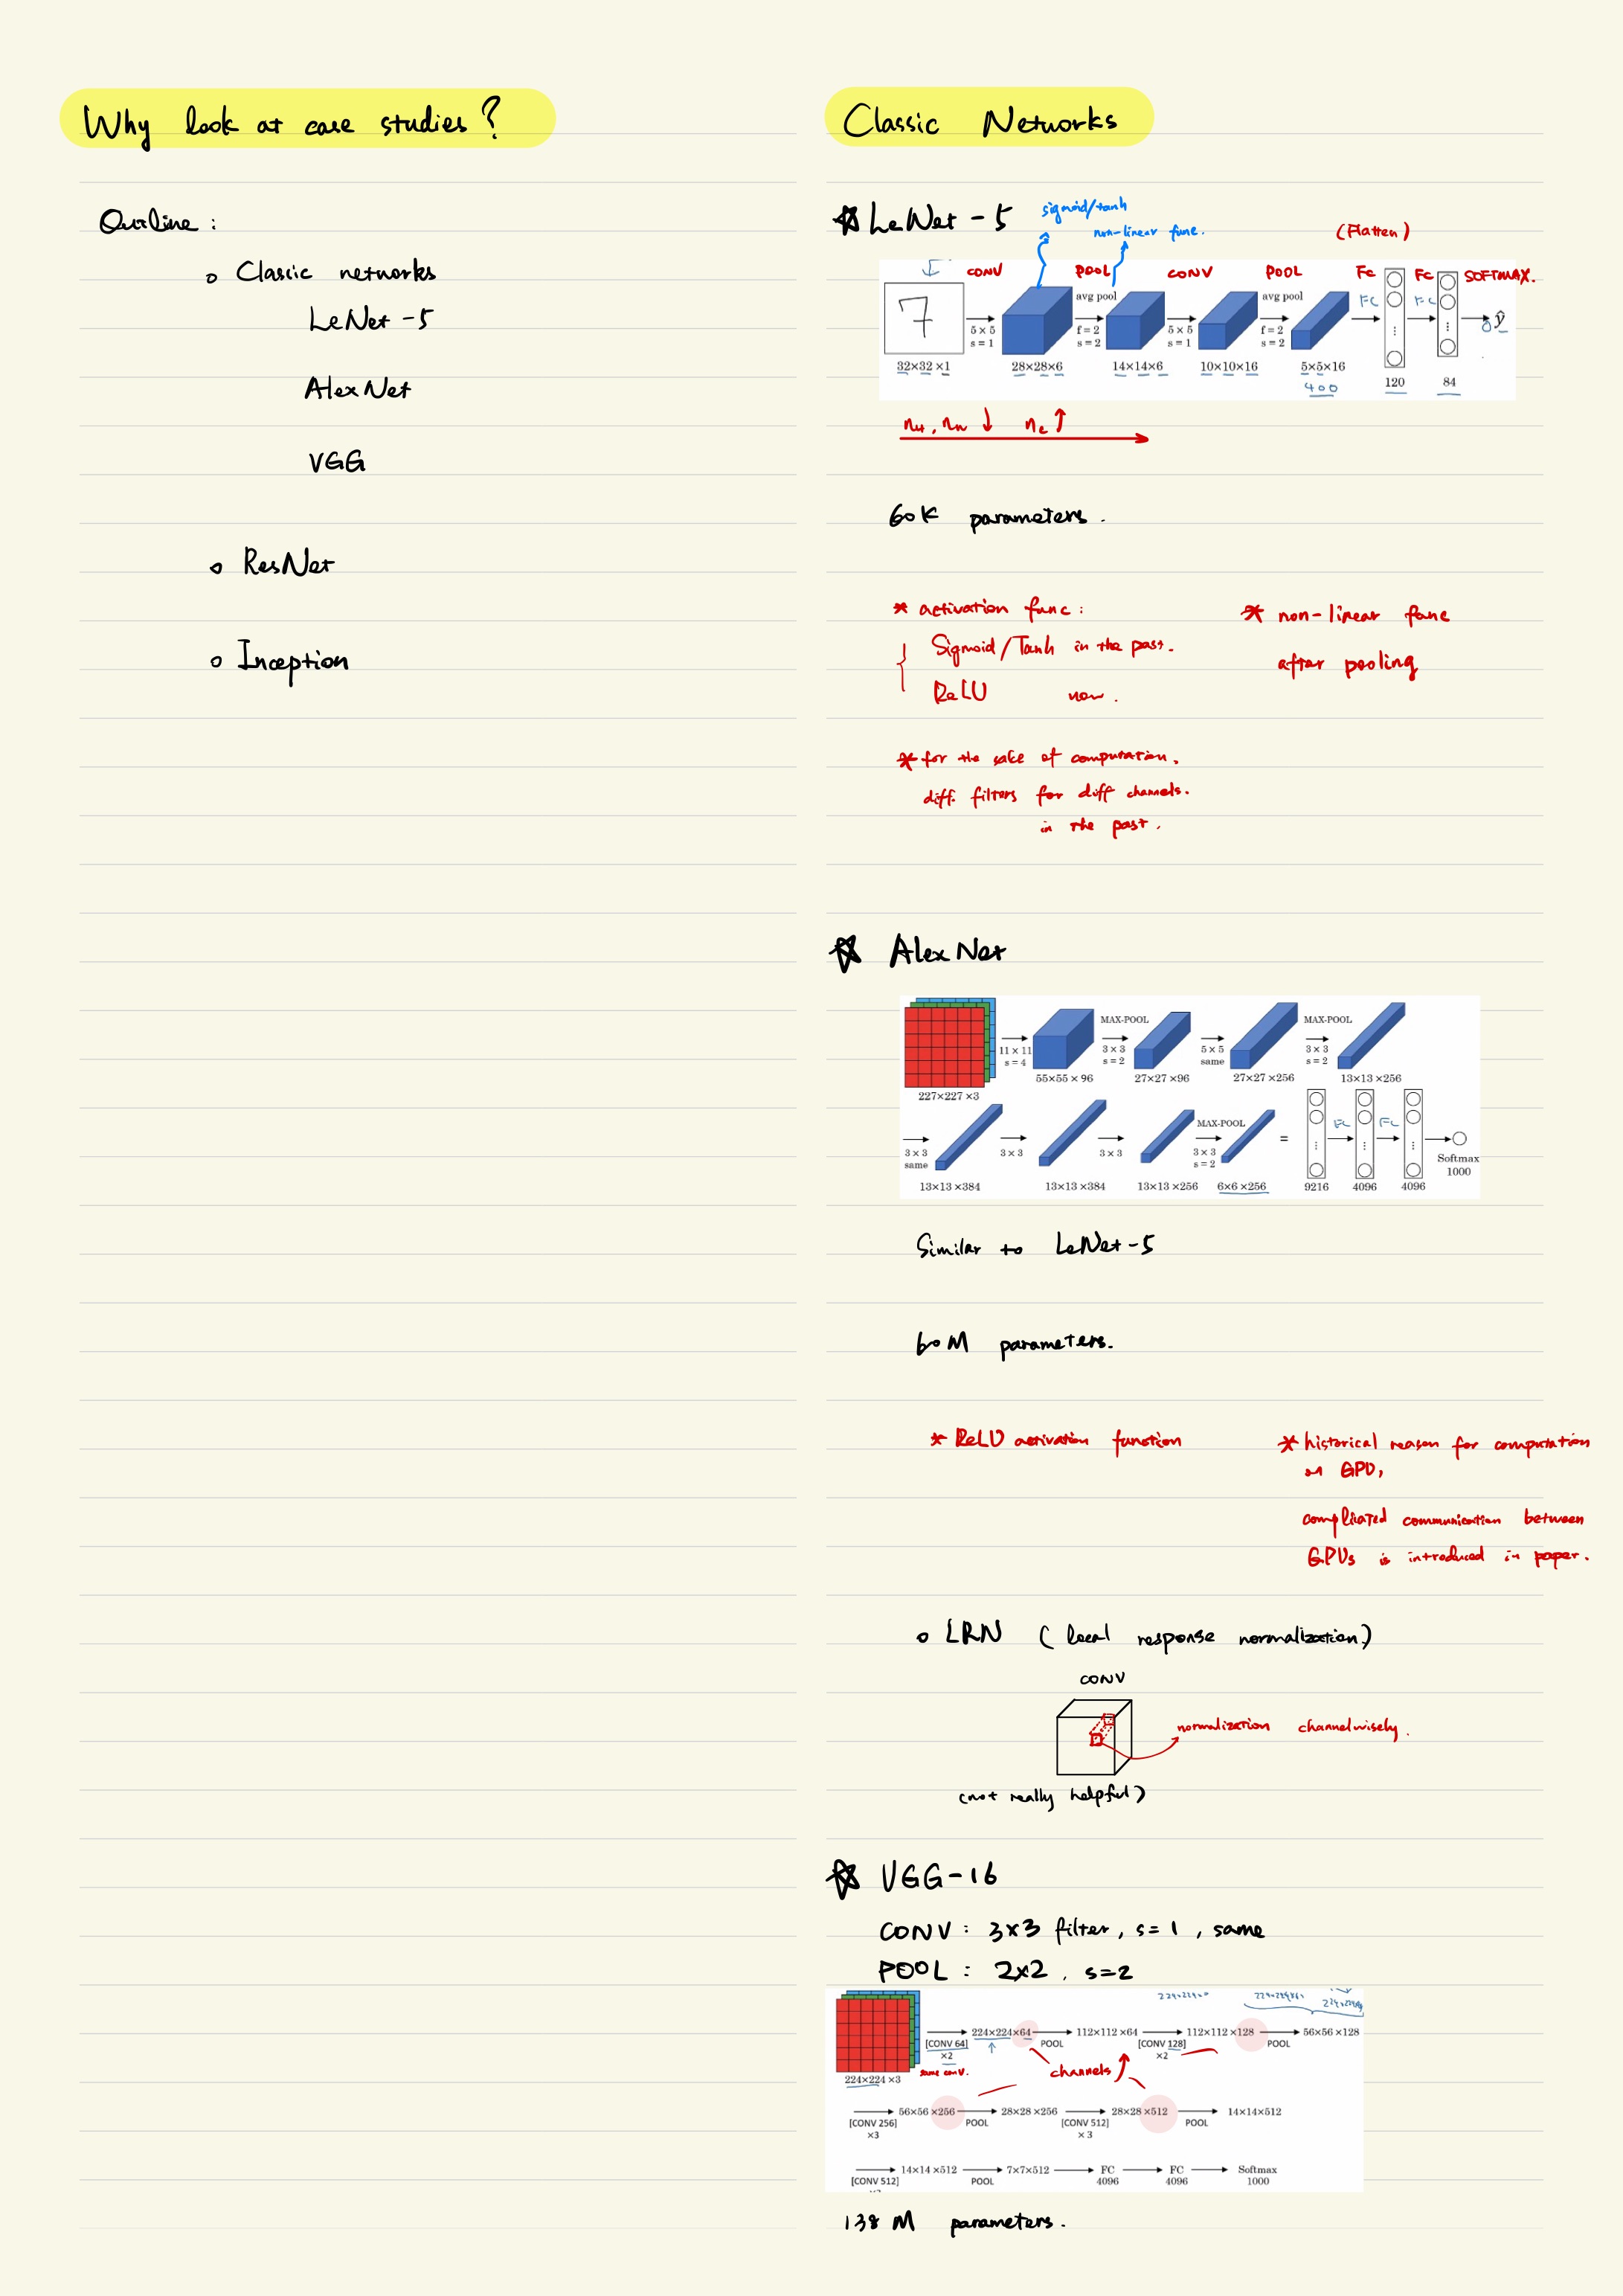 Why look at case studies?
Outline :
Classic networks
LeNet-5
AlexNet
VGG
ResNet
Inception
Classic Networks
LeNet-5
sigmoid/tanh
non-linear func.
(Flatten)
CONV POOL CONV POOL FC FC SOFTMAX.
7
avg pool avg pool
FC FC
5 × 5 f = 2 5 × 5 f = 2
s = 1 s = 2 s = 1 s = 2
ŷ
32×32 ×1 28×28×6 14×14×6 10×10×16 5×5×16
400 120 84
nH, nW ↓ nc ↑
60K parameters.
* activation func :
Sigmoid/Tanh in the past.
ReLU now.
* non-linear func
after pooling
* for the sake of computation,
diff. filters for diff channels.
in the past.
AlexNet
MAX-POOL MAX-POOL
11 × 11 3 × 3 5 × 5 3 × 3
s = 4 s = 2 same s = 2
227×227 ×3 55×55 × 96 27×27 ×96 27×27 ×256 13×13 ×256
MAX-POOL
FC FC
3 × 3 3 × 3 3 × 3 3 × 3 =
same s = 2
Softmax
1000
13×13 ×384 13×13 ×384 13×13 ×256 6×6 ×256 9216 4096 4096
Similar to LeNet-5
60M parameters.
* ReLU activation function
* historical reason for computation
on GPU,
complicated communication between
GPUs is introduced in paper.
LRN (local response normalization)
CONV
normalization channelwisely.
(not really helpful)
VGG-16
CONV : 3×3 filter, s=1, same
POOL : 2×2, s=2
224×224×64 112×112 ×64 112×112 ×128 56×56 ×128
[CONV 64] POOL [CONV 128] POOL
×2 ×2
same conv. channels ↑
224×224 ×3
56×56 ×256 28×28 ×256 28×28 ×512 14×14×512
[CONV 256] POOL [CONV 512] POOL
×3 ×3
14×14 ×512 7×7×512 FC FC Softmax
[CONV 512] POOL 4096 4096 1000
138 M parameters.